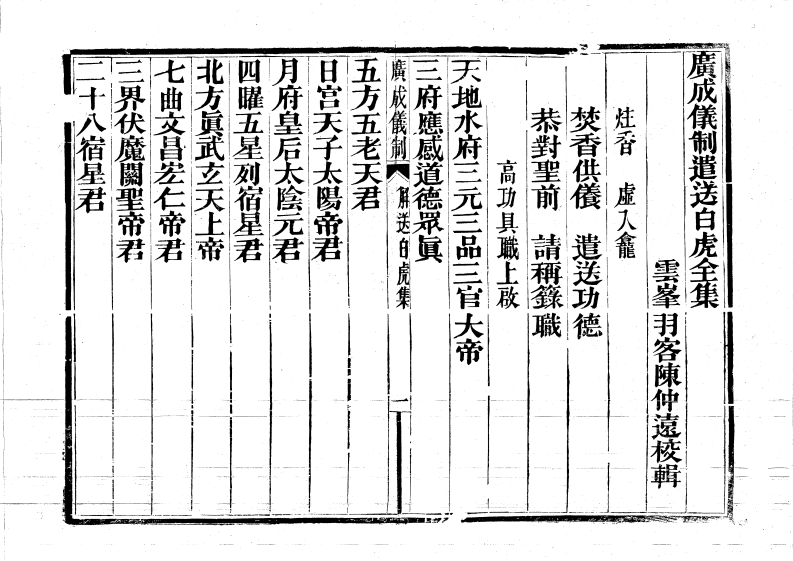 廣成儀制遣送白虎全集
雲峯羽客陳仲遠校輯
炷香　虛入龕
焚香供儀　遣送功德
恭對聖前　請稱籙職
高功具職上啟
天地水府三元三品三官大帝
三府應感道德眾眞
廣成儀制　解送白虎集　一
五方五老天君
日宮天子太陽帝君
月府皇后太陰元君
四曜五星列宿星君
北方眞武玄天上帝
七曲文昌宏仁帝君
三界伏魔關聖帝君
二十八宿星君